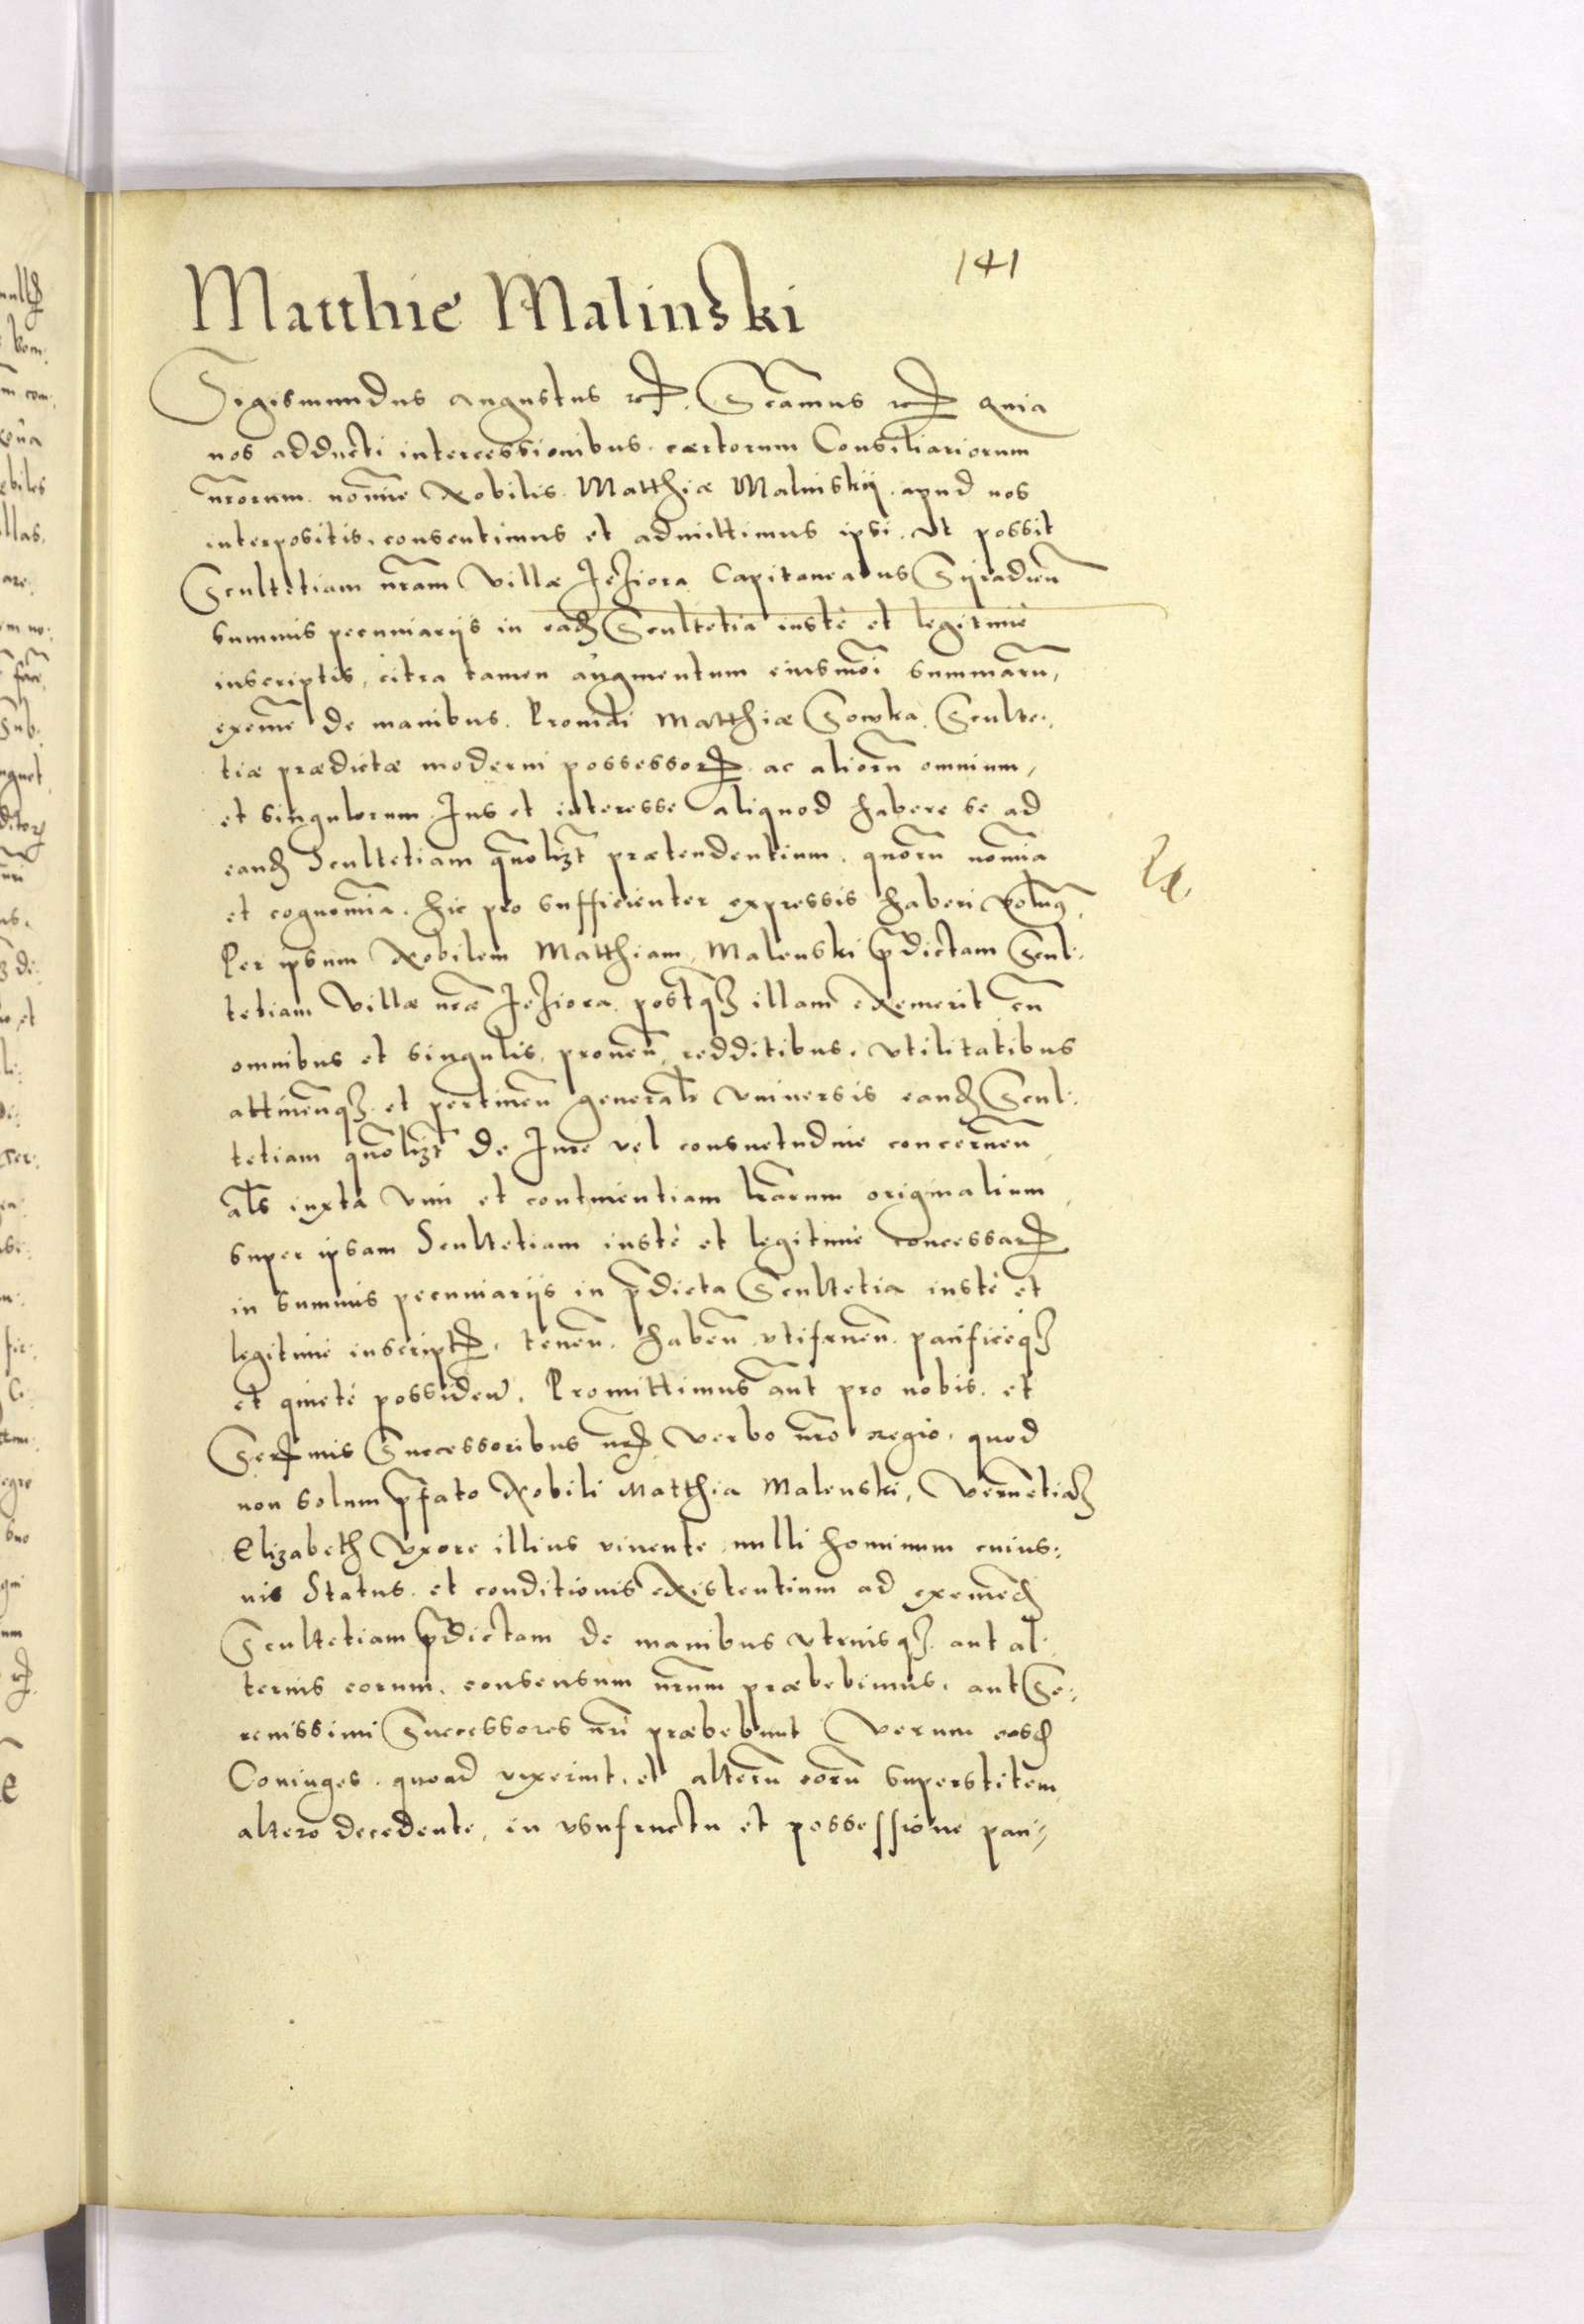 141
Matthie Malinski
Sigismundus Augustus etc. Significamus etc. Quia
nos adducti intercessionibus certorum Consiliariorum
nrorum nomine Nobilis Matthiæ Malinskij apud nos
interpositis, consentimus et admittimus ipsi, Ut possit
Scultetiam nram Villæ Jeziora Capitaneatus Syradien
summis pecuniarijs in eadem Scultetia iustè et legitimè
inscriptis, citra tamen augmentum eiusmoi summaru,
eximere de manibus Matthiæ Sowka Sculte:
tiæ prædictæ moderni possessor ac alioru omnium,
et singulorum Jus et interesse aliquod habere se ad
eand Scultetiam quolizt prætendentium, quoru nomina
et cognomina hic pro sufficienter expressis haberi volumus.
Per ipsum Nobilem Matthiam Malenski pdictam Scul:
tetiam Villæ nræ Jeziora postqz illam exemerit cu
omnibus et singulis, prouen, redditibus, utilitatibus
attinenqz et pertinen generalr Vniuersis eand Scul:
tetiam quolizt de Jure vel consuetudine concernen,
als iuxta Vim et continentiam lrarum originalium
super ipsam Scultetiam iustè et legitimè concessar
in summis pecuniarijs in pdicta Scultetia iustè et
legitimè inscript, tenen, haben utifruen, pacificèqz
et quietè possiden. Promittimus aut pro nobis et
Sermis Successoribus nris Verbo nro regio, quod
non solum pfato Nobili Matthia Malenski, Verumetia
Elizabeth Uxore illius viuente nulli hominum cuius:
uis Status et conditionis existentium ad eximend
Scultetiam pdictam de manibus utriusqz aut al:
terius eorum, consensum nrum præbebimus, aut Se:
renissimi Successores nri præbebunt Verum eosd
Coniuges quoad vixerint, et alteru eoru superstitem
altero decedente, in usufructu et possessione paci: